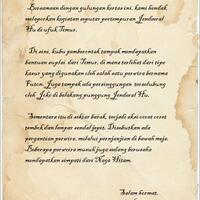 Bersamaan dengan gulungan kertas ini, kami hendak
melaporkan kegiatan seputar pertempuran Jenderal
Hu di ufuk Timur.
Di sini, kubu pemberontak tampak mendapatkan
bantuan suplai dari Timur, di mana terlihat dari tipe
kapur yang digunakan oleh salah satu perwira bernama
Futon. Juga tampak ada persinggungan terselubung
oleh Joke di belakang punggung Jenderal Hu.
Sementara itu di sekitar barak, terjadi aksi corat coret
tembok dan lempar sendal jepit. Disebutkan ada
pergantian perwira, melalui perjanjian di bawah meja.
Beberapa perwira musuh juga sedang berusaha
mendapatkan simpati dari Naga Hitam.
Salam hormat,